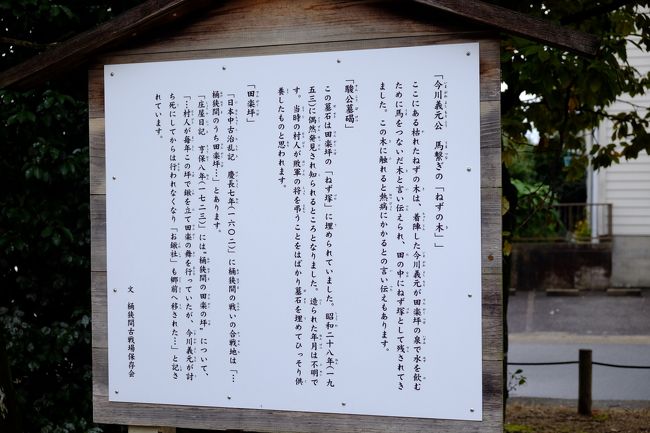 「今川義元公　馬繋ぎの「ねずの木」」
ここにある枯れたねずの木は、着陣した今川義元が田楽坪の泉で水を飲む
ために馬をつないだ木と言い伝えられ、田の中にねず塚として残されてき
ました。この木に触れると熱病にかかるとの言い伝えもあります。
「駿公墓碣」
この墓石は田楽坪の「ねず塚」に埋められていました。昭和二十八年（一九
五三）に偶然発見され知られるところとなりました。造られた年月は不明で
す。当時の村人が敗軍の将を弔うことをはばかり墓石を埋めてひっそり供
養したものと思われます。
「田楽坪」
「日本中古治乱記　慶長七年（一六〇二）に桶狭間の戦いの合戦地は「…
桶狭間のうち田楽坪…」とあります。
「庄屋日記　亨保八年（一七二三）」には〝桶狭間の田楽の坪〟について、
「…村人が毎年この坪で鍬を立て田楽の舞を行っていたが、今川義元が討
ち死にしてからは行われなくなり「お鍬社」も郷前へ移された…」と記さ
れています。
文　桶狭間古戦場保存会